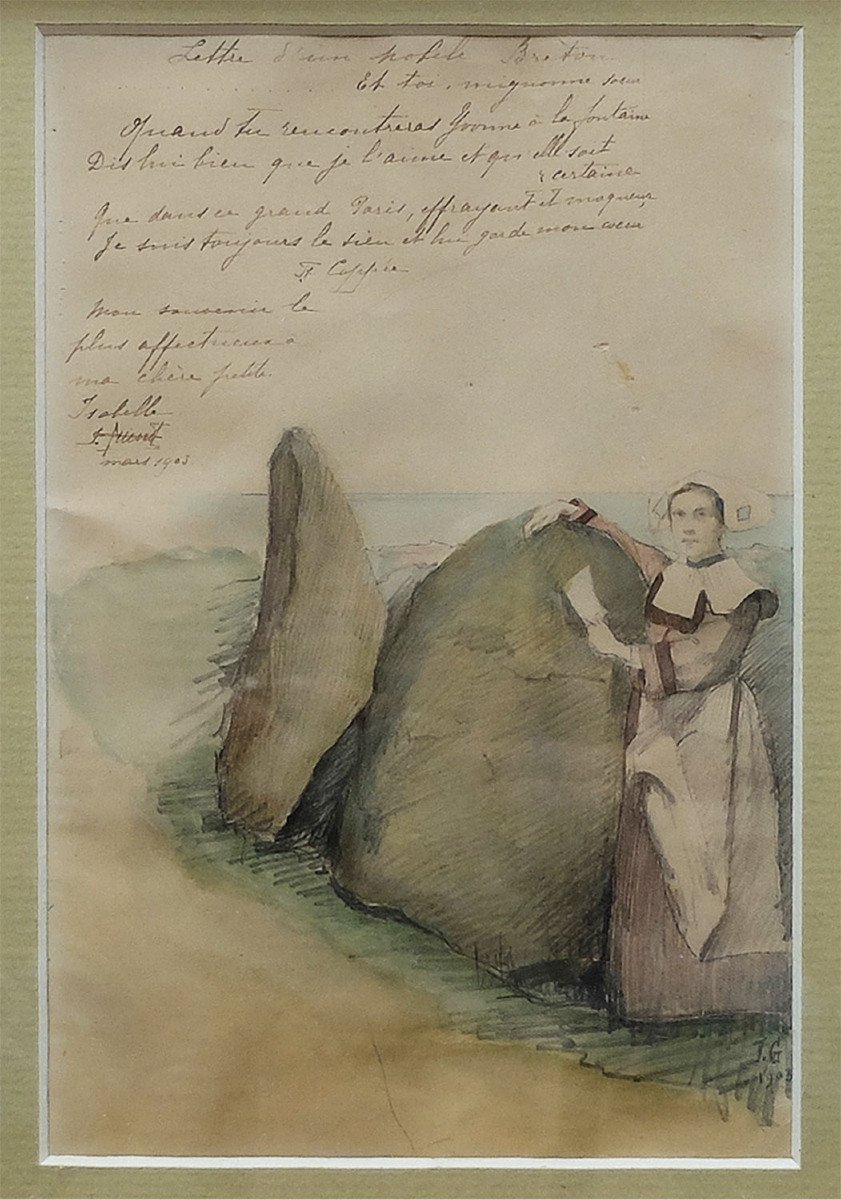 Lettre d'un mobile Breton
Et toi, mignonne sœur
Quand tu rencontreras Yvonne à la fontaine
Dis lui bien que je l'aime et qu'elle soit
certaine
Que dans ce grand Paris, effrayant et moqueur
Je suis toujours le sien et lui garde mon cœur
F. Coppée
Mon souvenir le
plus affectueux à
ma chère petite
Isabelle
mars 1903
J.G
1903